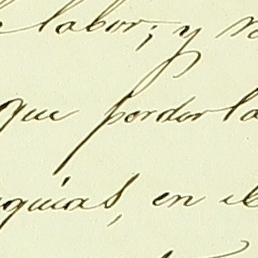 labor; y
que perder la
quias, en el